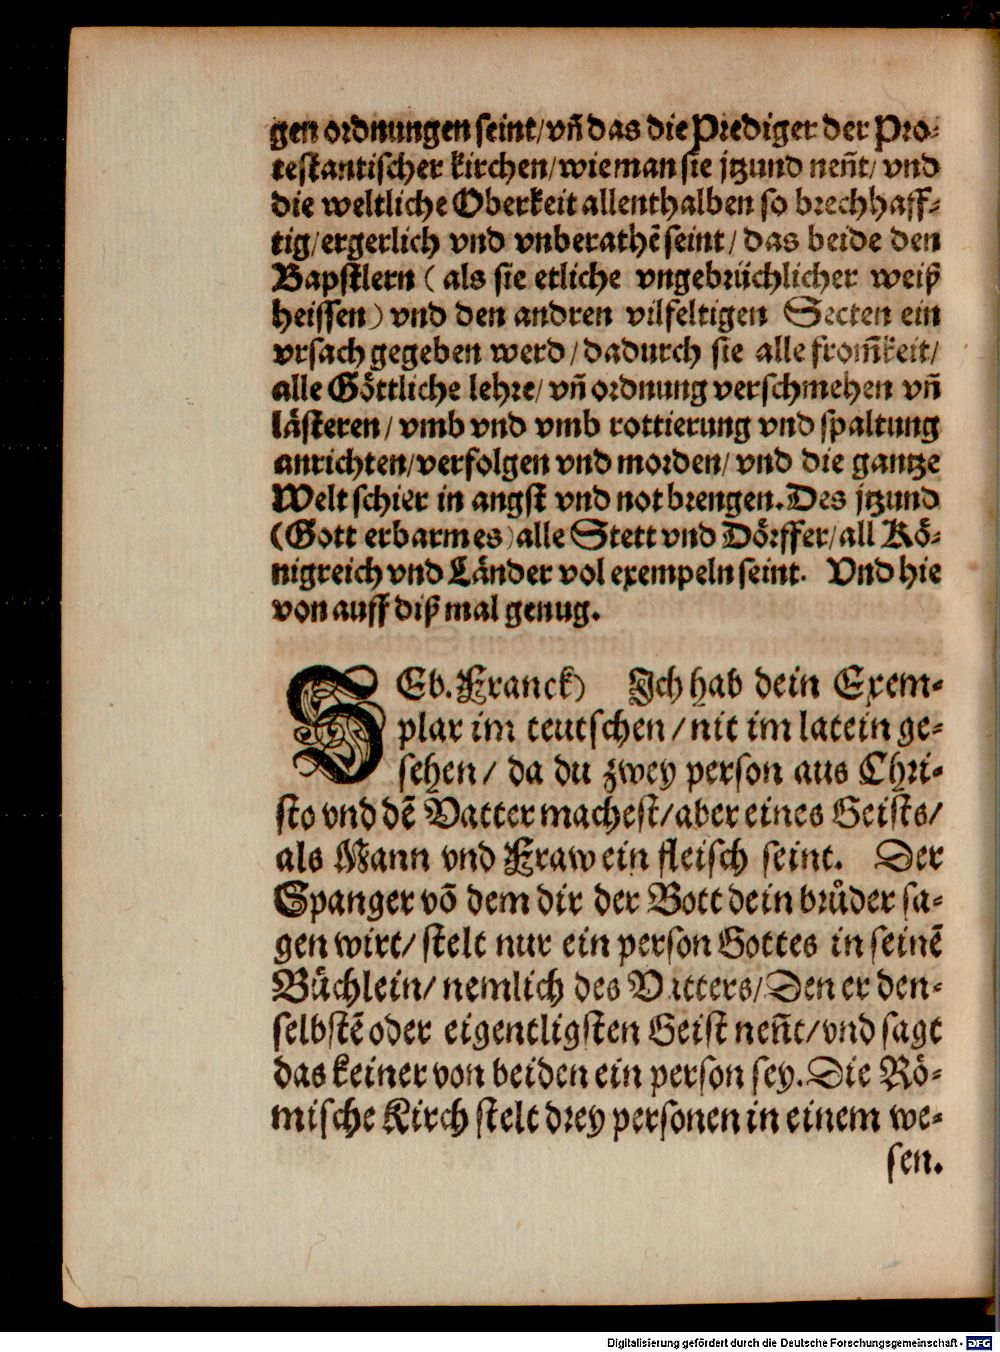 gen ordnungen seint/ vñ das die Prediger der Pro⸗
testantischer kirchen/ wie man sie jtzund neñt/ vnd
die weltliche Oberkeit allenthalben so brechhaff⸗
tig/ ergerlich vnd vnberathē seint/ das beide den
Bapstlern ( als sie etliche vngebrüchlicher weiß
heissen) vnd den andren vilfeltigen Secten ein
vrsach gegeben werd/ dadurch sie alle from̃keit/
alle Göttliche lehre/ vñ ordnung verschmehen vñ
lästeren/ vmb vnd vmb rottierung vnd spaltung
anrichten/ verfolgen vnd morden/ vnd die gantze
Welt schier in angst vnd not brengen. Des jtzund
(Gott erbarm es) alle Stett vnd Dörffer/ all Kö⸗
nigreich vnd Länder vol exempeln seint. Vnd hie
von auff diß mal genug.
SEb. Franck) Ich hab dein Exem⸗
plar im teutschen/ nit im latein ge⸗
sehen/ da du zwey person aus Chri⸗
sto vnd dē Vatter machest/ aber eines Geists/
als Mann vnd Fraw ein fleisch seint. Der
Spanger vō dem dir der Bott dein brůder sa⸗
gen wirt/ stelt nur ein person Gottes in seinē
Büchlein/ nemlich des Vatters/ Den er den⸗
selbstē oder eigentligsten Geist neñt/ vnd sagt
das keiner von beiden ein person sey. Die Rö⸗
mische Kirch stelt drey personen in einem we⸗
sen.
Digitalisierung gefördert durch die Deutsche Forschungsgemeinschaft - DFG